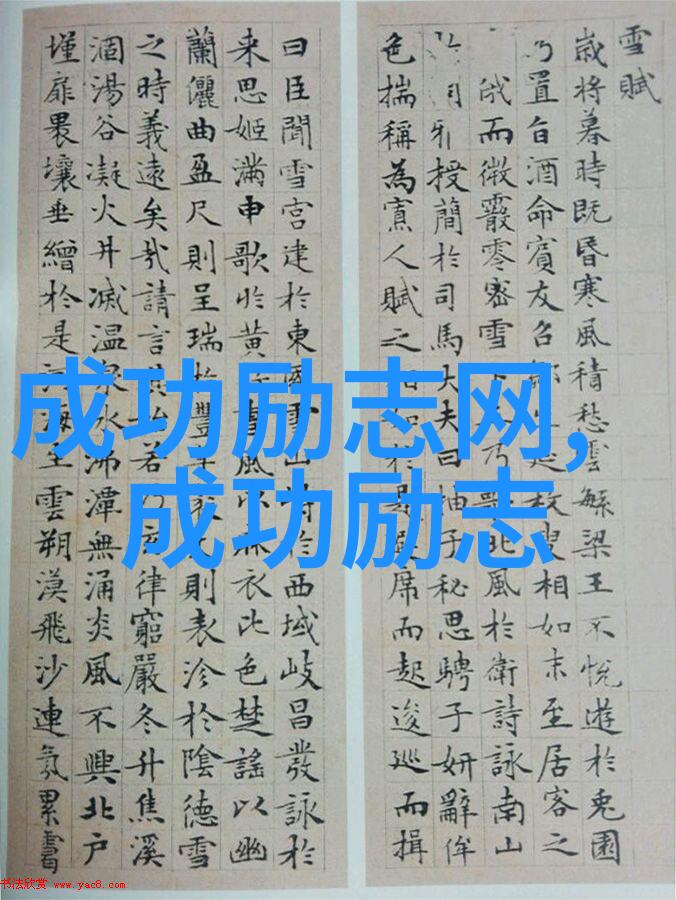 雪賦
歲將暮時既昏寒風積愁雲繁梁王不悅遊於兎園
乃置旨酒命賓友召枚叟相如末至居客之
俄而微霰零密雪乃歌北風於衛詩詠南山
雅授簡於司馬大夫曰抽子秘思騁子妍辭侔
色揣稱為寡人賦之相如於是避席而起逡巡而揖
曰臣聞雪宮建於東國雪山峙於西域岐昌發詠於
来思姬滿申歌於黄曹風以麻衣比色楚謠以幽
蘭儷曲盈尺則呈瑞於豐年袤丈則表沴於陰德雪
之時義遠矣哉請言其始若乃玄律窮嚴冬升焦溪
涸湯谷凝火井滅温泉冰沸潭無涌炎風不興北户
墐扉裸壤垂繒於是河海生雲朔漠飛沙連氛累靄
成功励志网,
成功励志
书法欣赏 www.yac8.com